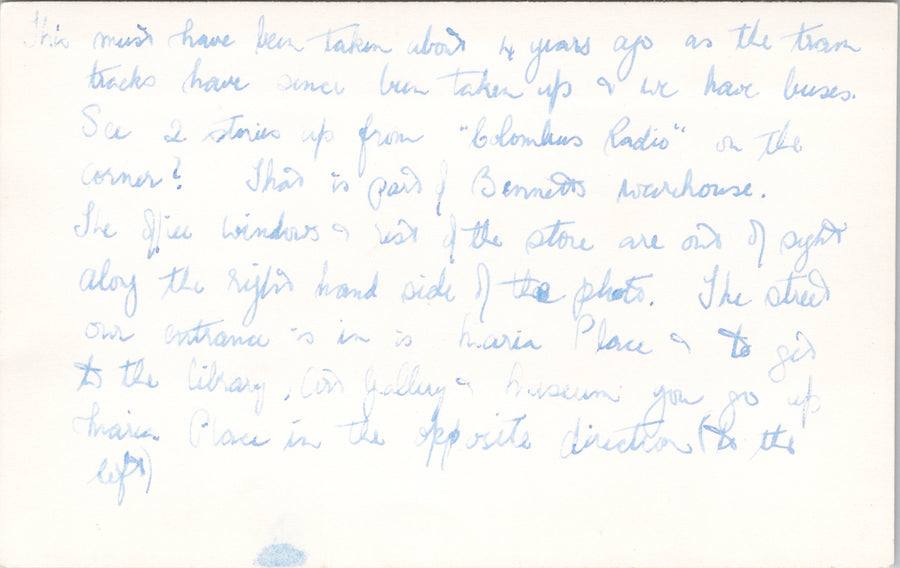 This must have been taken about 4 years ago as the tram
tracks have since been taken up & we have buses.
See 2 stories up from "Columbus Radio" on the
corner? That is part of Bennetts warehouse.
The office windows & rest of the store are out of sight
along the right hand side of the photo. The street
our entrance is in is Maria Place & to get
to the library, Art Gallery & Museum you go up
Maria Place in the opposite direction (to the
left)